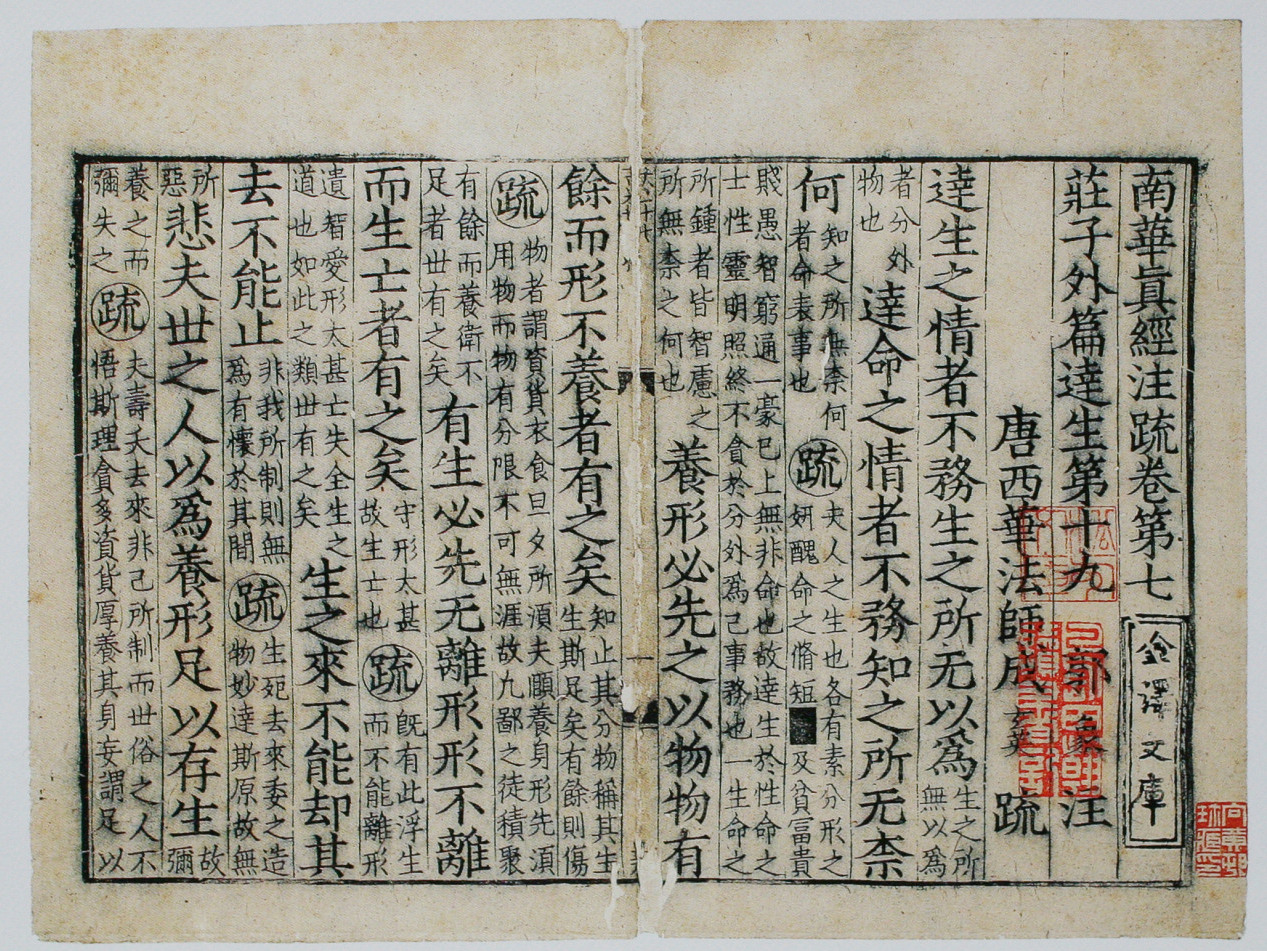 南華眞經注疏卷第七
金澤文庫
莊子外篇達生第十九 郭象注
唐西華法師成玄英疏
達生之情者不務生之所无以爲生之所無以爲
者分外物也達命之情者不務知之所无柰
何知之所無柰何者命表事也疏夫人之生也各有素分形之妍醜命之脩短及貧富貴
賤愚智窮通一豪已上無非命也故達生於性命之士性靈明照終不貪於分外爲己事務也一生命之
所鍾者皆智慮之所無柰之何也養形必先之以物物有
餘而形不養者有之矣知止其分物稱其生生斯足矣有餘則傷
疏物者謂資貨衣食旦夕所湏夫頤養身形先湏用物而物有分限不可無涯故九鄙之徒積聚
有餘而養衛不足者世有之矣有生必先无離形形不離
而生亡者有之矣守形太甚故生亡也疏旣有此浮生而不能離形
遺智愛形太甚亡失全生之道也如此之類世有之矣生之來不能却其
去不能止非我所制則無爲有懷於其間疏生死去來委之造物妙達斯原故無
所惡悲夫世之人以爲養形足以存生故彌
養之而彌失之疏夫壽夭去來非己所制而世俗之人不悟斯理貪多資貨厚養其身妄謂足以